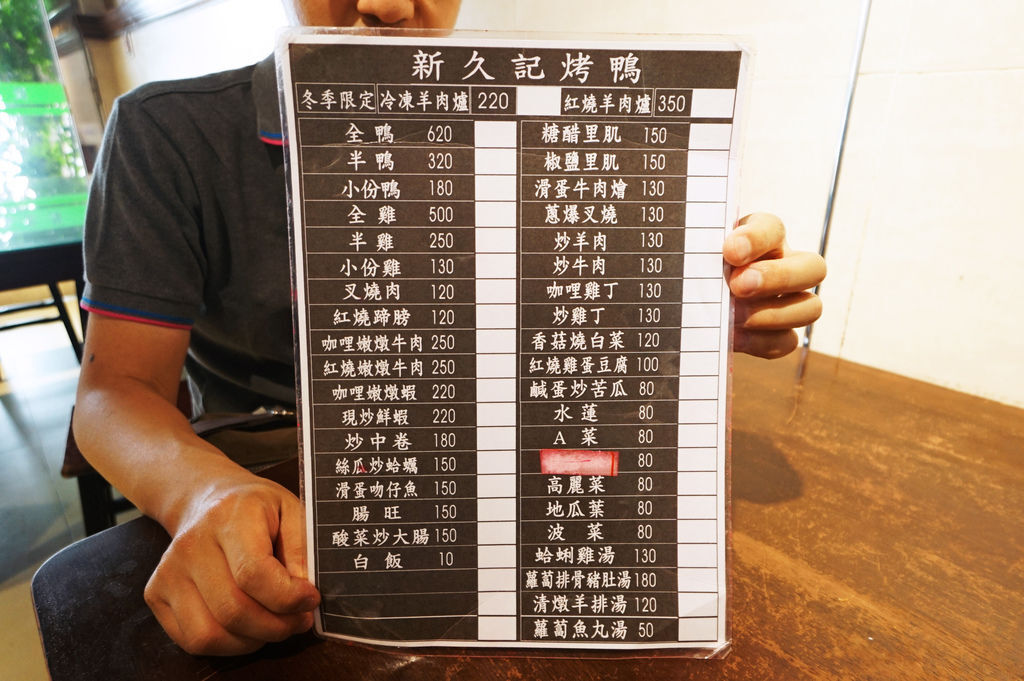 新久記烤鴨
冬季限定 冷凍羊肉爐 220 紅燒羊肉爐 350
全鴨 620
半鴨 320
小份鴨 180
全雞 500
半雞 250
小份雞 130
叉燒肉 120
紅燒蹄膀 120
咖哩嫩燉牛肉 250
紅燒嫩燉牛肉 250
咖哩嫩燉蝦 220
現炒鮮蝦 220
炒中卷 180
絲瓜炒蛤蠣 150
滑蛋吻仔魚 150
腸旺 150
酸菜炒大腸 150
白飯 10
糖醋里肌 150
椒鹽里肌 150
滑蛋牛肉燴 130
蔥爆叉燒 130
炒羊肉 130
炒牛肉 130
咖哩雞丁 130
炒雞丁 130
香菇燒白菜 120
紅燒雞蛋豆腐 100
鹹蛋炒苦瓜 80
水蓮 80
A菜 80
80
高麗菜 80
地瓜葉 80
波菜 80
蛤蜊雞湯 130
蘿蔔排骨豬肚湯 180
清燉羊排湯 120
蘿蔔魚丸湯 50